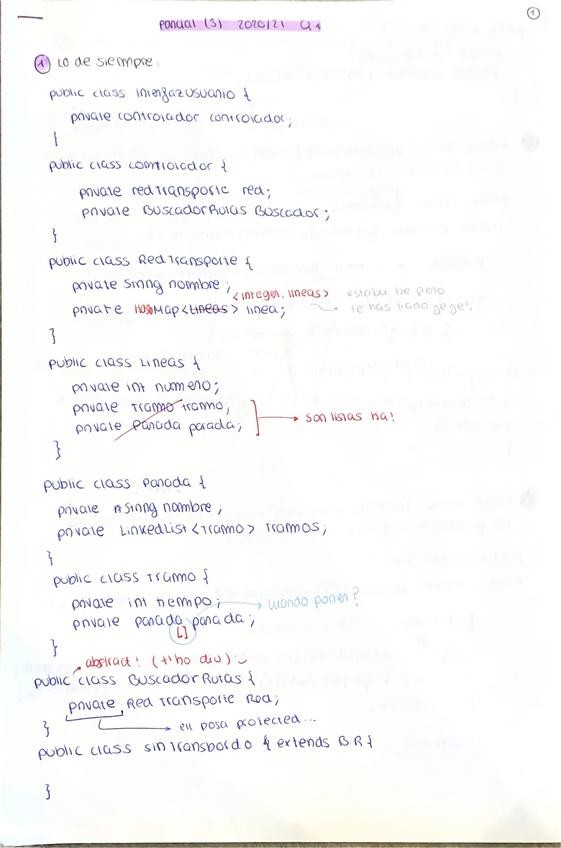 1
Parcial (3) 2020/21 Q1
1 Lo de siempre:
public class InterfazUsuario {
private controlador controlador;
}
public class controlador {
private redTransporte red;
private BuscadorRutas Buscador;
}
public class RedTransporte {
private String nombre;
<integer, lineas> estaba be pero
private Map<Lineas> linea; te has liado jeje!
}
public class Lineas {
private int numero;
private tramo tramo;
private Parada parada; son listas tia!
}
public class Parada {
private String nombre,
private LinkedList<Tramo> Tramos;
}
public class Tramo {
private int tiempo; cuando poner?
private parada parada;
[]
}
abstract! (t'ho diu)
public class BuscadorRutas {
private Red Transporte Red;
} ell posa protected...
public class sin Transbordo { extends B.R {
}